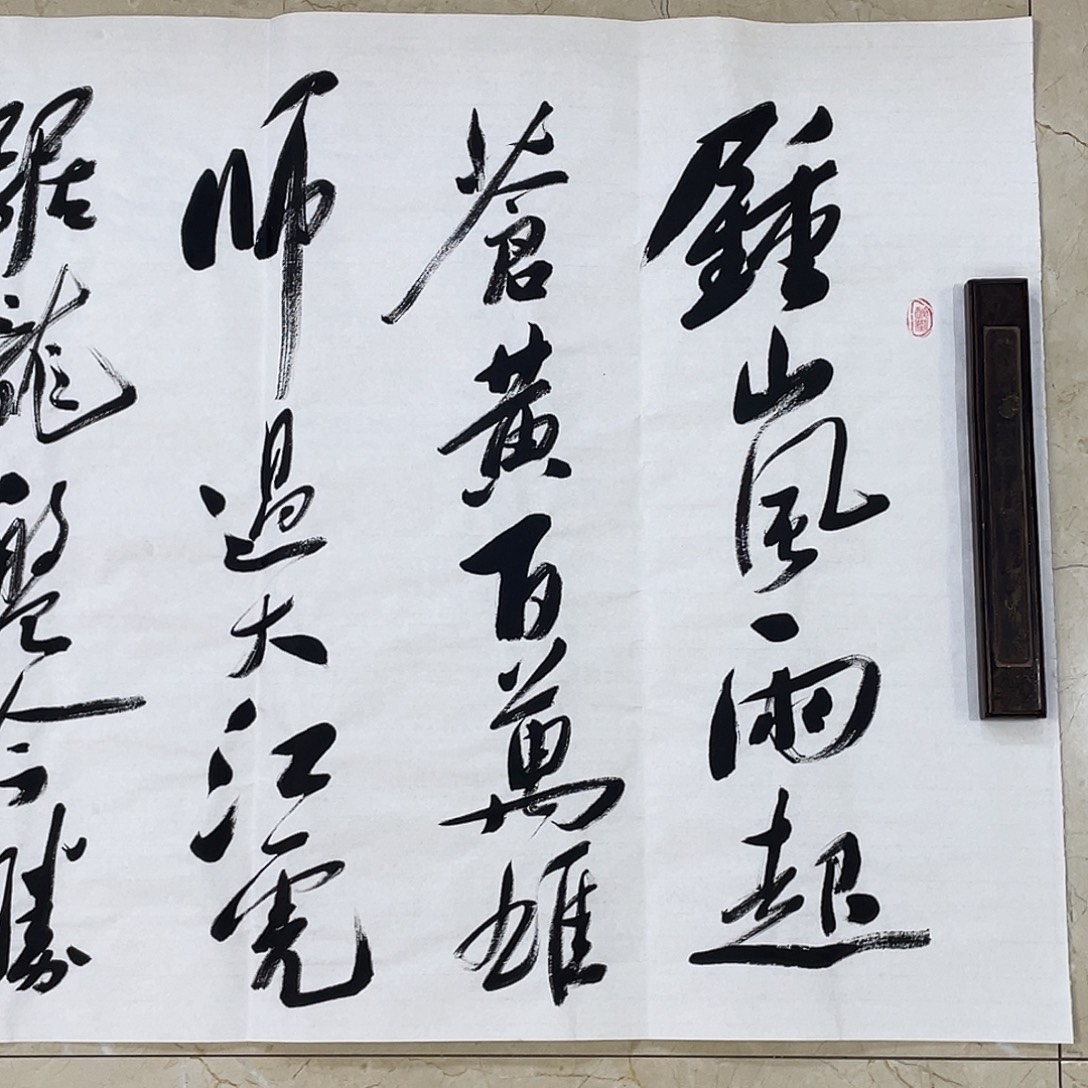 鍾山風雨起
蒼黃百萬雄
師過大江虎
踞龍盤今勝